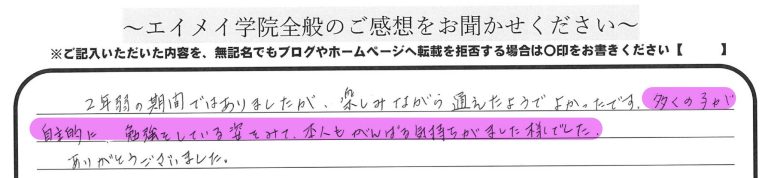 ～エイメイ学院全般のご感想をお聞かせください～
※ご記入いただいた内容を、無記名でもブログやホームページへ転載を拒否する場合は〇印をお書きください【　　】
2年弱の期間ではありましたが、楽しみながら通えたようでよかったです。多くの子が
自主的に　勉強をしている姿をみて、本人もがんばる気持ちがました様でした。
ありがとうございました。